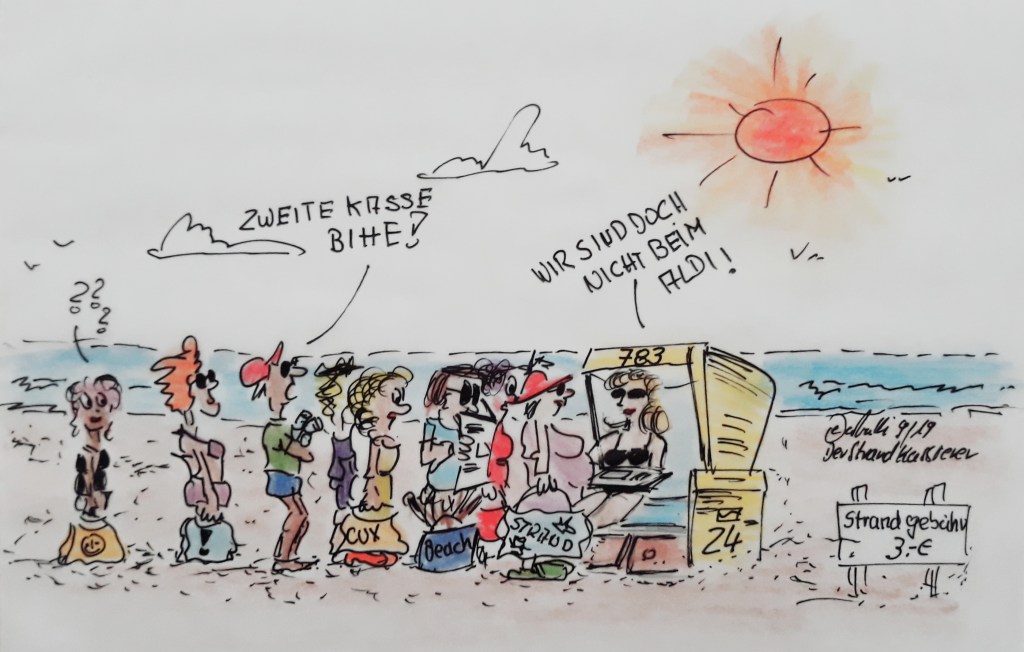 ZWEITE KASSE
BITTE!?
WIR SIND DOCH
NICHT BEIM
ALDI!
???
783
9/19
Der Strandkassierer
Strandgebühr
3.-€
CUX
Beach
STRAND
24